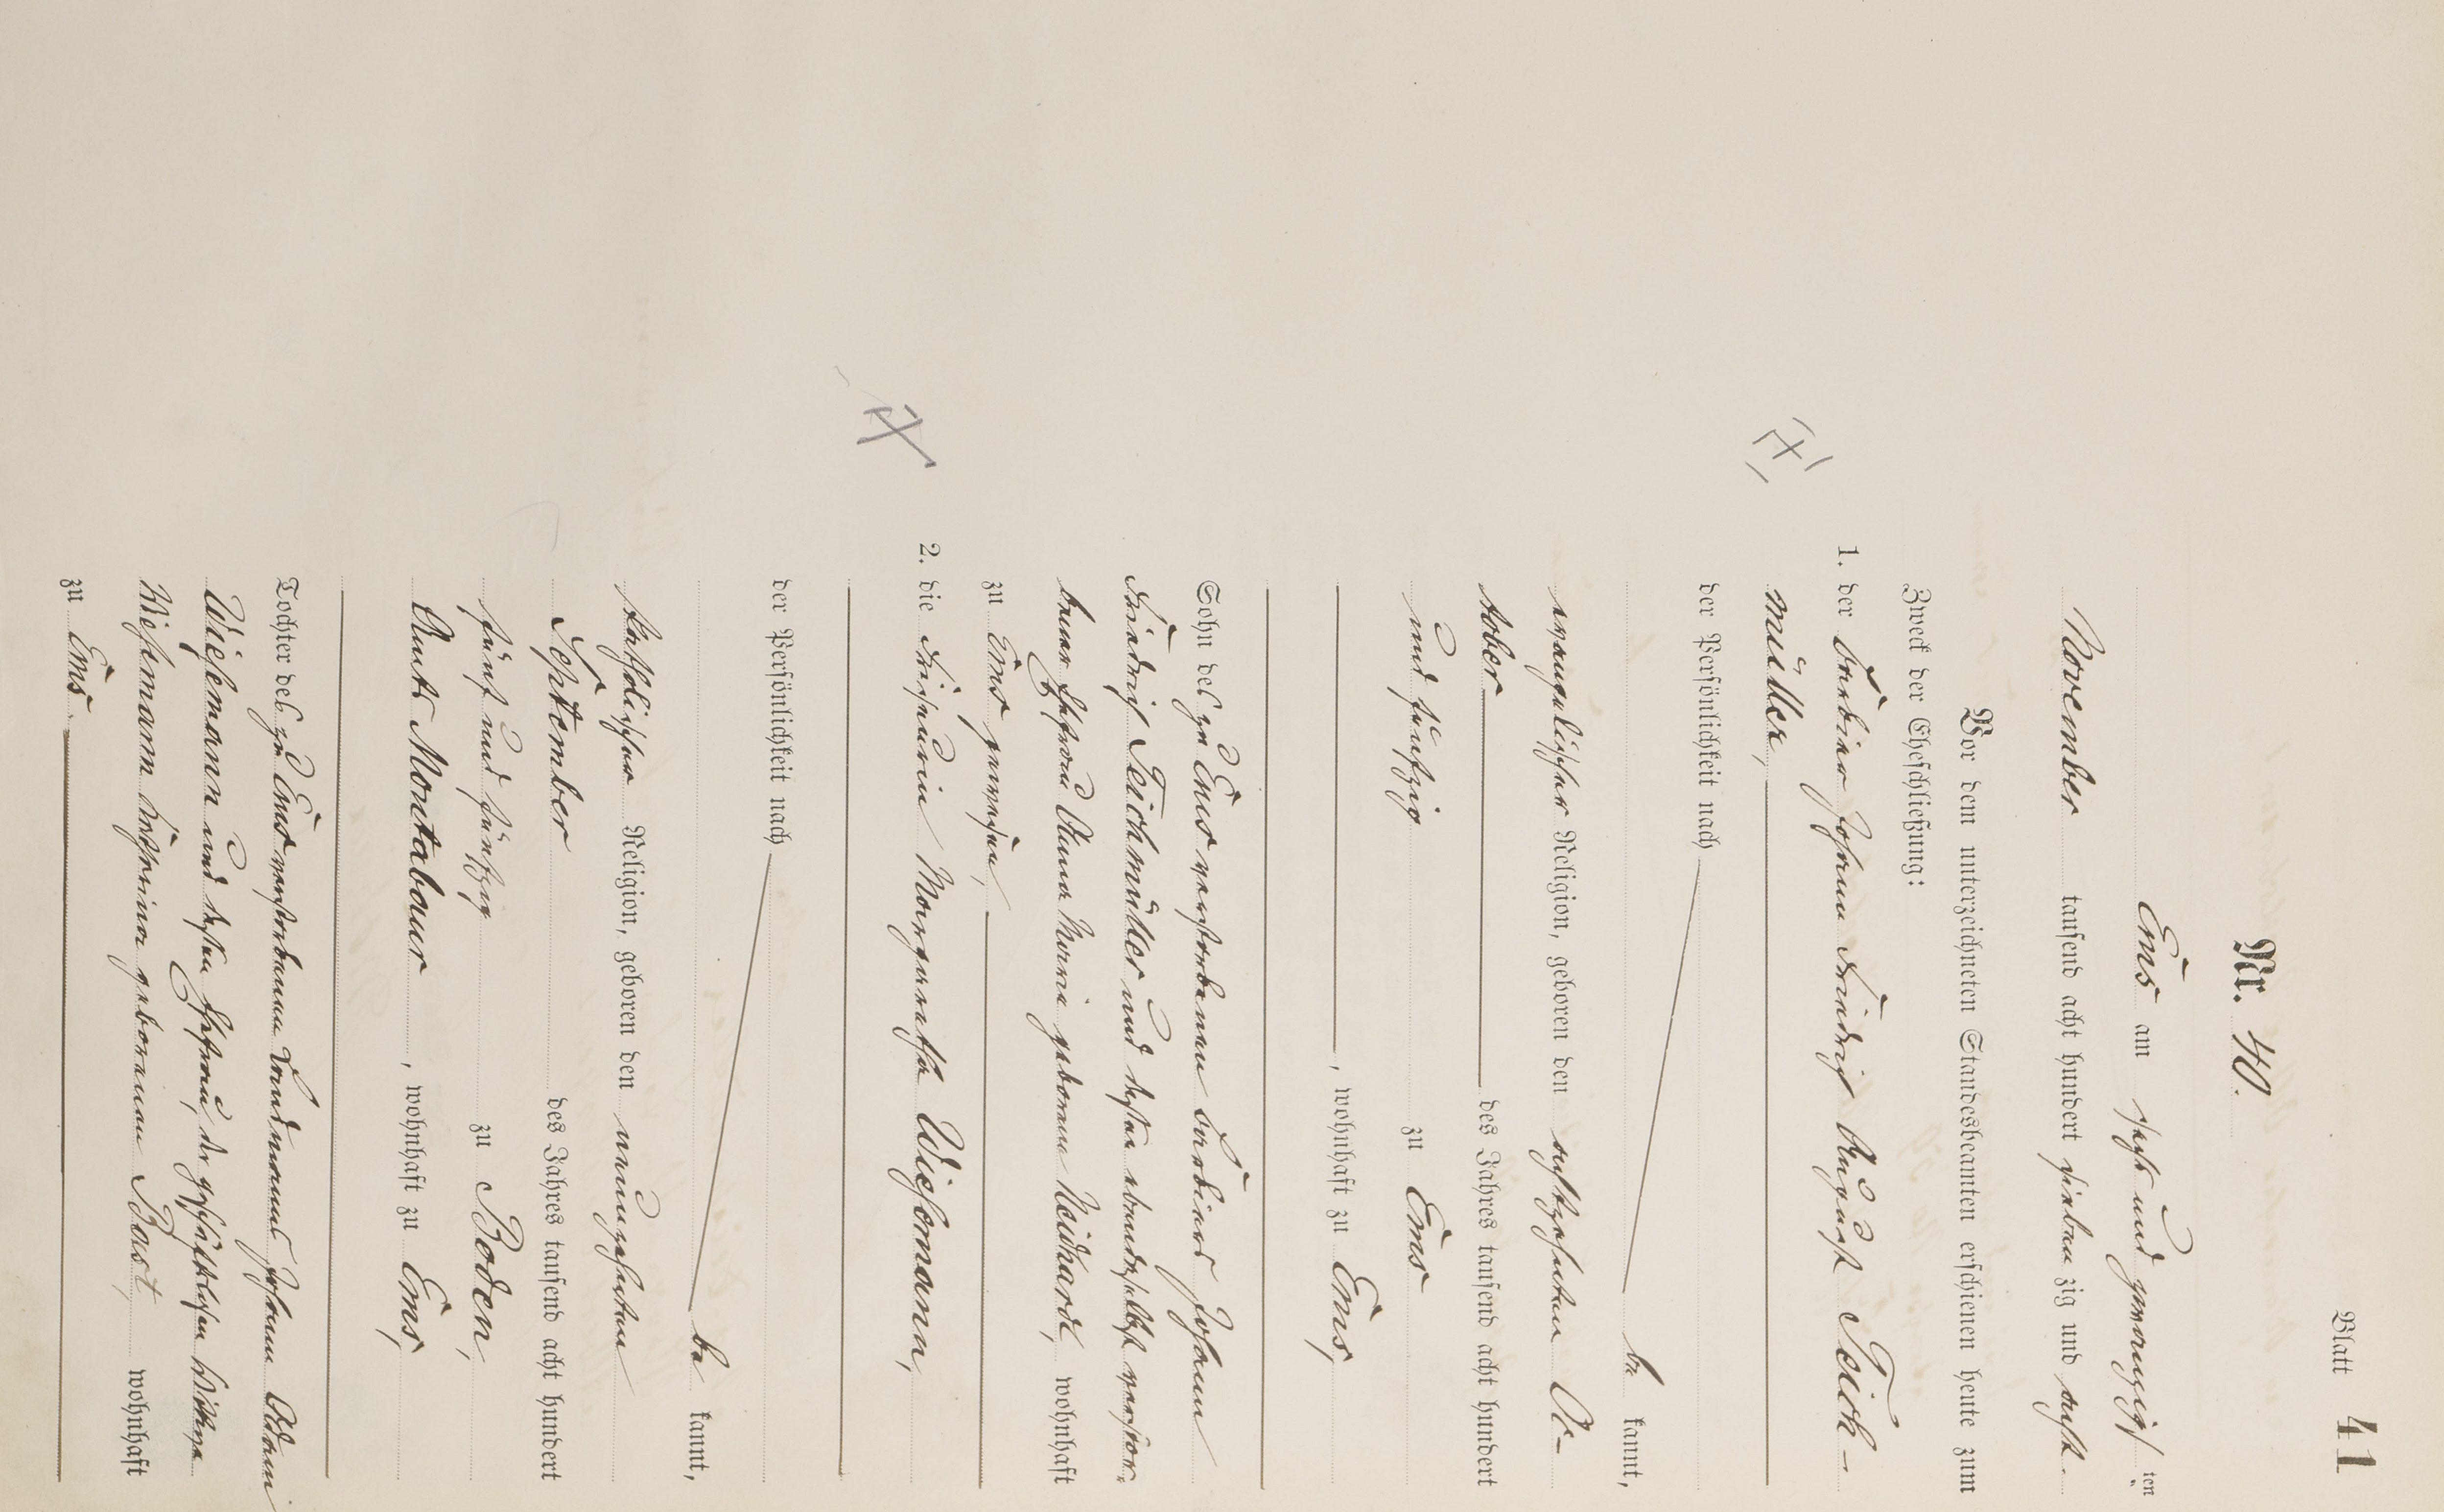 Blatt 41
Nr. 40.
Ems am sechs und zwanzigsten
November tausend acht hundert siebenzig und acht.
Vor dem unterzeichneten Standesbeamten erschienen heute zum
Zweck der Eheschließung:
1. der Barbier Johann Friedrich August Teich-
müller,
der Persönlichkeit nach
be kannt,
evangelischer Religion, geboren den achtzehnten Oc-
tober des Jahres tausend acht hundert
und fünfzig zu Ems
, wohnhaft zu Ems,
Sohn des zu Ems verstorbenen Barbiers Johann
Friedrich Teichmüller und dessen ebendaselbst verstor-
bener Ehefrau Anna Maria geborene Neidhard, wohnhaft
zu Ems gewesen,
2. die Friseurin Margaretha Wiesemann,
der Persönlichkeit nach
be kannt,
katholischer Religion, geboren den neunzehnten
September des Jahres tausend acht hundert
fünf und fünfzig zu Boden,
Amts Montabaur, wohnhaft zu Ems,
Tochter des zu Ems verstorbenen Landmanns Johann Adam
Wiesemann und dessen Ehefrau, der geschäftslosen Wittwe
Wiesemann Katharina geborenen Bast, wohnhaft
zu Ems.